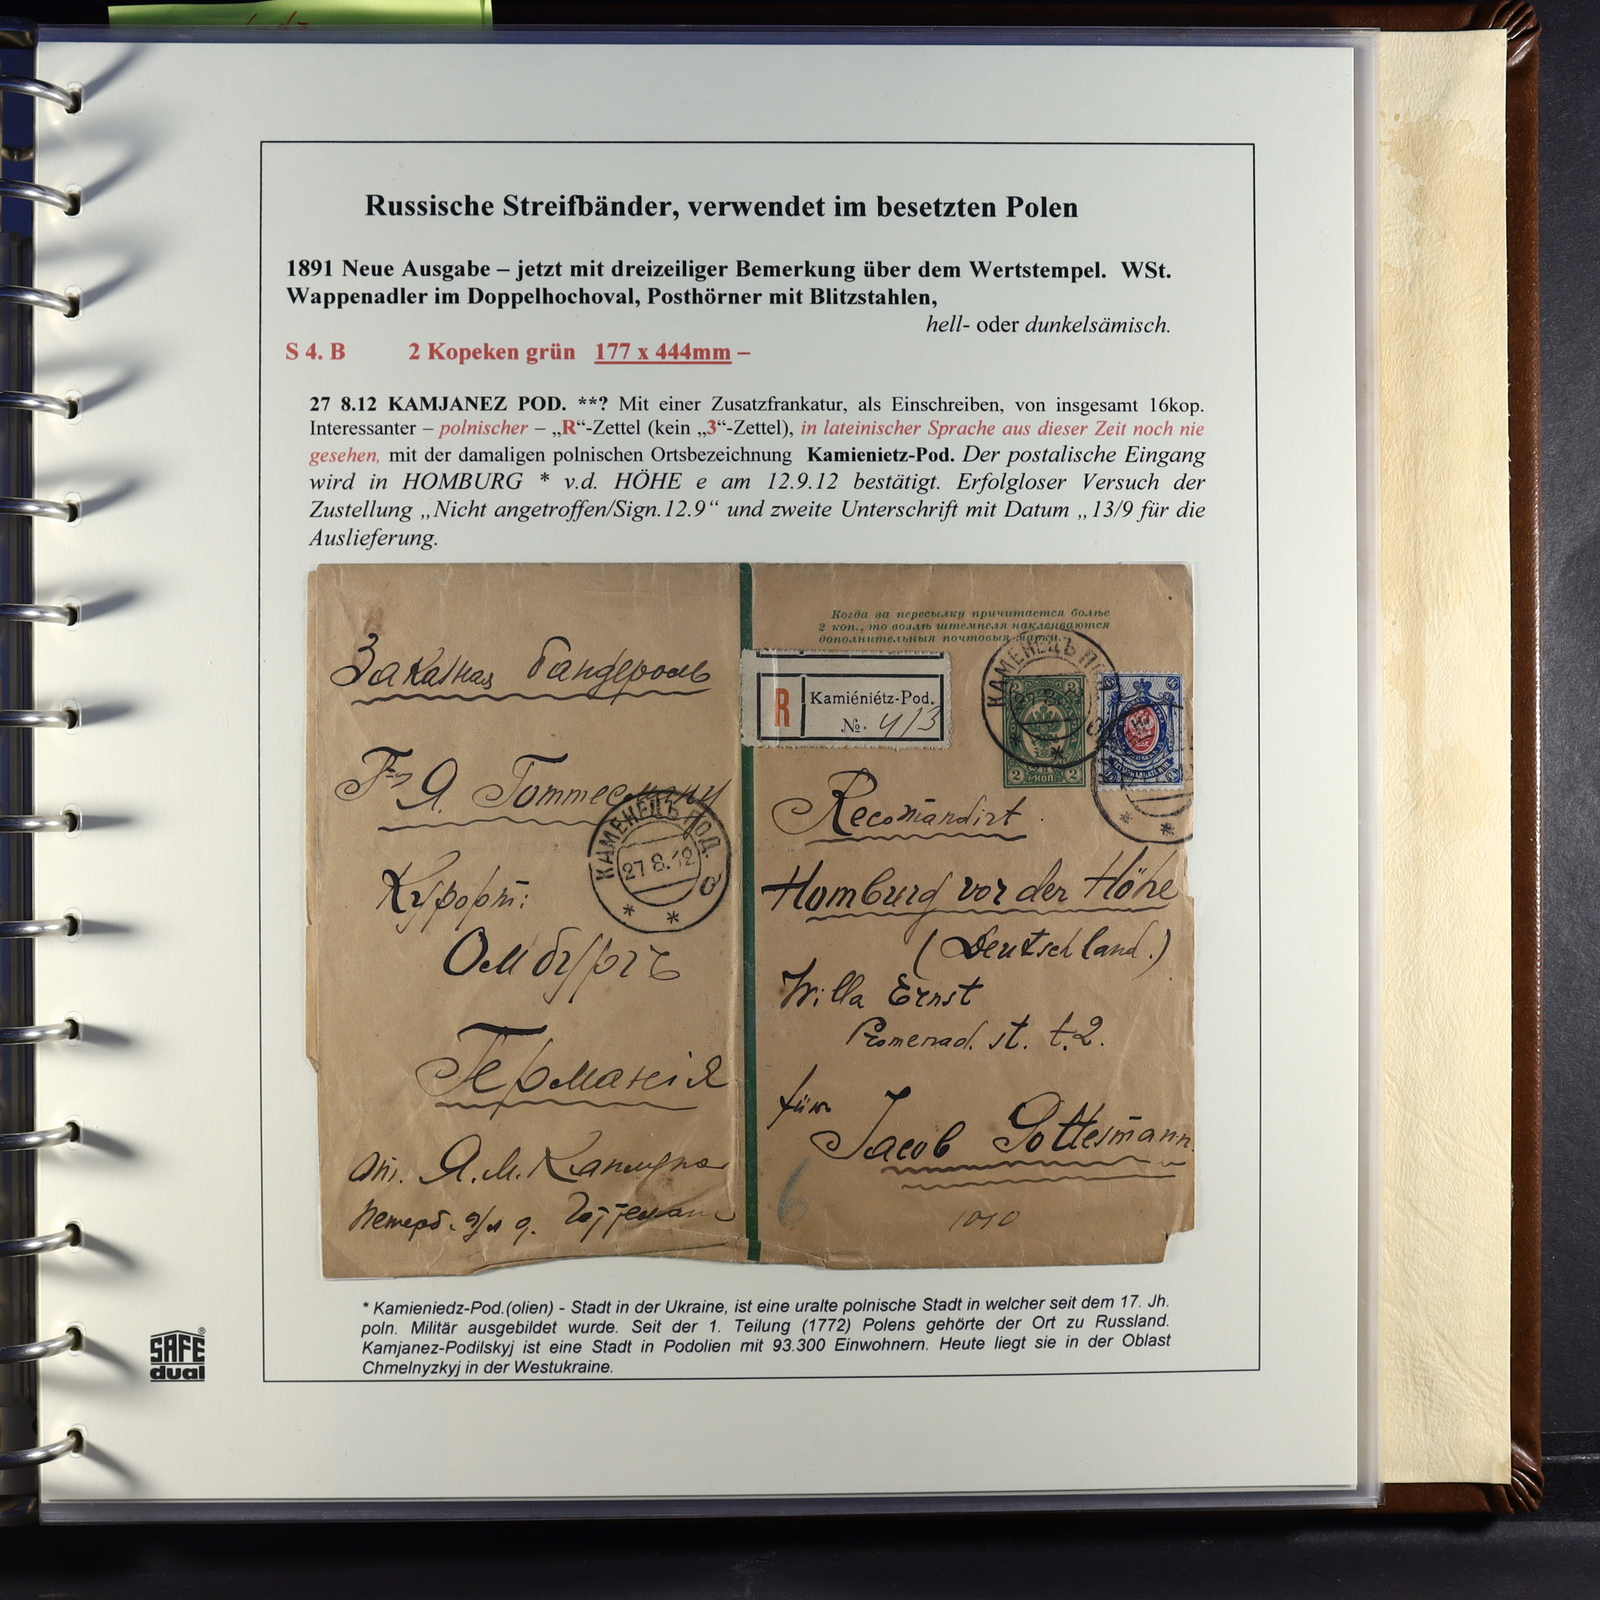 Russische Streifbänder, verwendet im besetzten Polen
1891 Neue Ausgabe – jetzt mit dreizeiliger Bemerkung über dem Wertstempel. WSt.
Wappenadler im Doppelhochoval, Posthörner mit Blitzstahlen,
hell- oder dunkelsämisch.
S 4. B 2 Kopeken grün 177 x 444mm –
27 8.12 KAMJANEZ POD. **? Mit einer Zusatzfrankatur, als Einschreiben, von insgesamt 16kop.
Interessanter – polnischer – „R“-Zettel (kein „3“-Zettel), in lateinischer Sprache aus dieser Zeit noch nie
gesehen, mit der damaligen polnischen Ortsbezeichnung Kamienietz-Pod. Der postalische Eingang
wird in HOMBURG * v.d. HÖHE e am 12.9.12 bestätigt. Erfolgloser Versuch der
Zustellung „Nicht angetroffen/Sign.12.9“ und zweite Unterschrift mit Datum „13/9 für die
Auslieferung.
Когда за пересылку причитается болѣе
2 коп., то возлѣ штемпеля наклеиваются
дополнительныя почтовыя марки.
Заказная бандероль
R Kamiéniétz-Pod.
№ 413
КАМЕНЕЦЪ ПОД.
2 2
2 КОП 2
Г-ну Я. Готтесману
КАМЕНЕЦЪ ПОД.
27 8.12
Курортъ:
Омбургъ
Германія
от. Я. М.
Recomandirt
Homburg vor der Höhe
(Deutschland.)
Willa Ernst
Promenad. st. t.2.
für
Jacob Gottesmann
6
1010
* Kamieniedz-Pod.(olien) - Stadt in der Ukraine, ist eine uralte polnische Stadt in welcher seit dem 17. Jh.
poln. Militär ausgebildet wurde. Seit der 1. Teilung (1772) Polens gehörte der Ort zu Russland.
Kamjanez-Podilskyj ist eine Stadt in Podolien mit 93.300 Einwohnern. Heute liegt sie in der Oblast
Chmelnyzkyj in der Westukraine.
SAFE®
dual